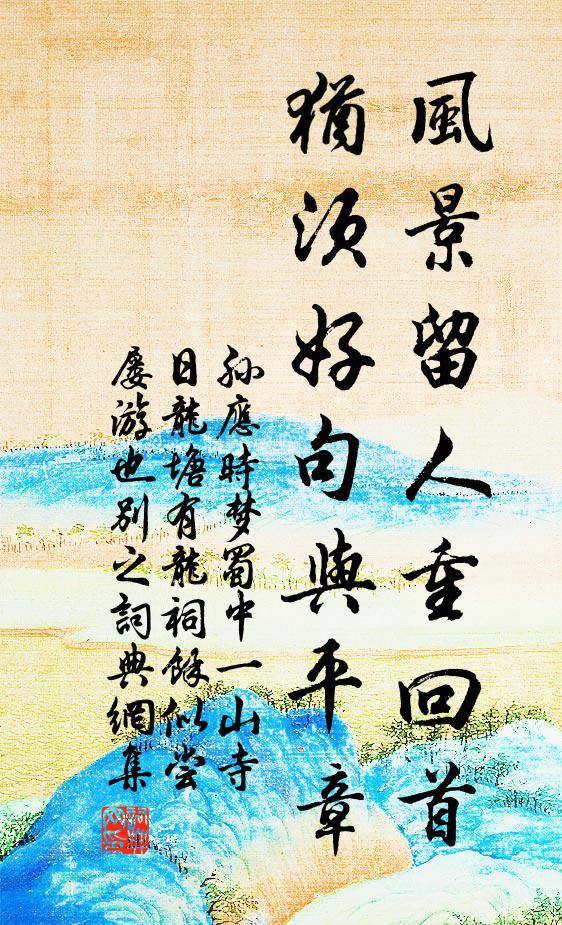 風景留人重回首
猶須好句與平章
孫應時梦蜀中一山寺
日龍塘有龍祠餘似尝
屡游也别之詞典網集